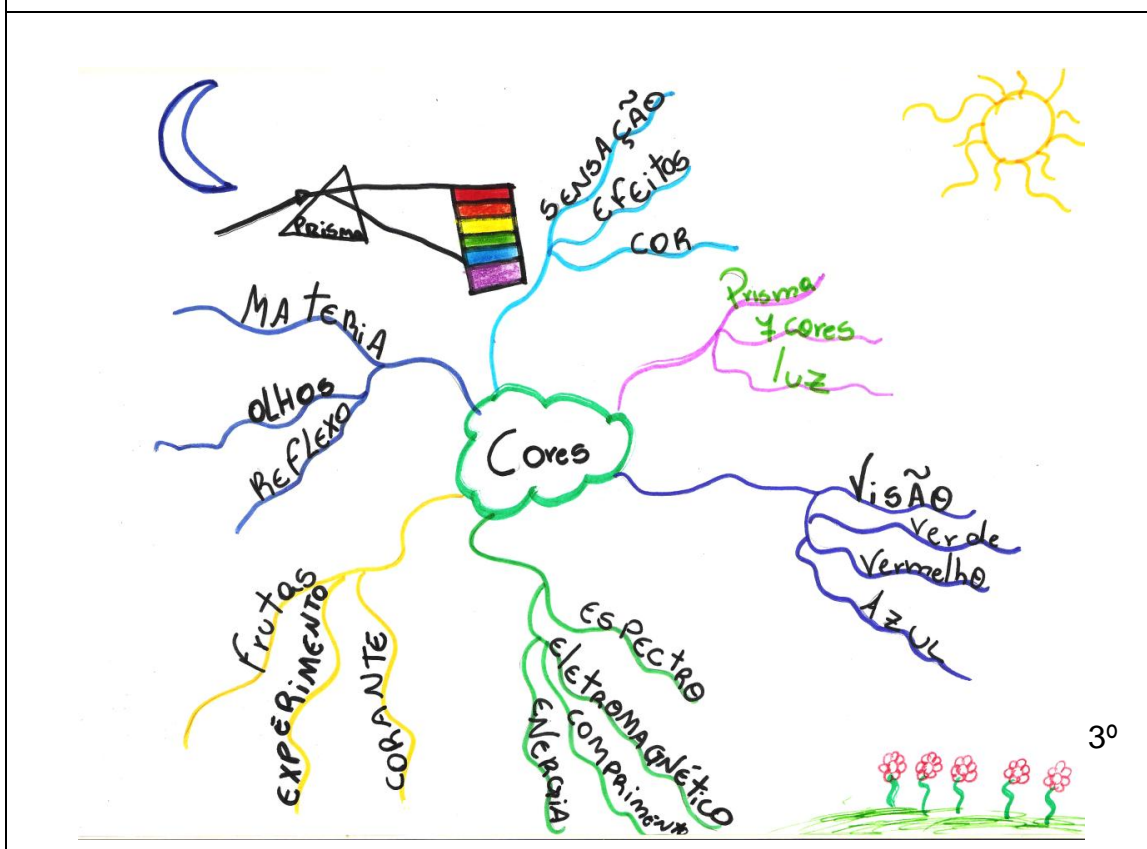 SENSAÇÃO
EfEitos
COR
PRisMA
Prisma
7 cores
luz
MAtERiA
OLHOS
REFLEXO
Cores
VisÃO
verde
vermelho
AZUL
frutas
EXPÉRIMENTO
CORANTE
ESPECtRO
ElEtROMAGNÉtiCO
COMPRIMENtO
ENERGIA
3º